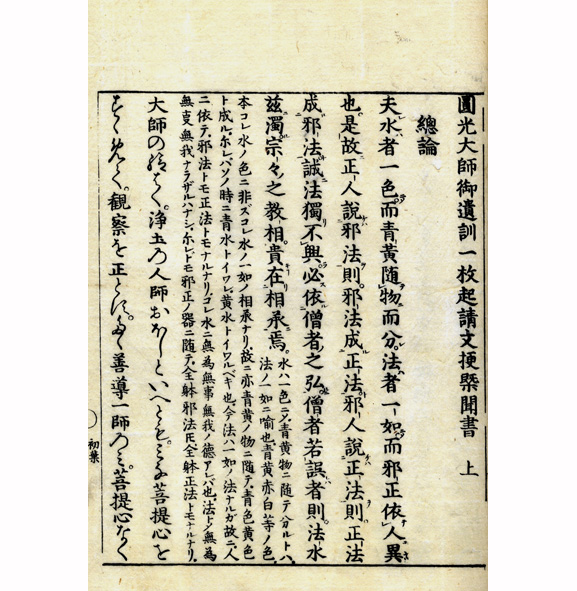 圓光大師御遺訓一枚起請文梗槩聞書　上
總論
夫水者一色而青黄随物而分法者一如而邪正依人異
也是故正人說邪法則邪法成正法邪人說正法則正法
成邪法誠法獨不興必依僧者之弘僧者若誤者則法水
茲濁宗々之教相貴在相承焉 水ハ一色ニテ青黄物ニ随テ分ルトハ 法ノ一如ニ喩也青黄赤白等ノ色
本コレ水ノ色ニ非ズコレ水ノ一如ノ相承ナリ故ニ亦青黄ノ物ニ随テ青色黄色
ト成ルホレバソノ時ニ青水トイワレ黄水トイワルベキ也今法ハ一如ノ法ナルガ故ニ人
ニ依テ邪法トモ正法トモナルナリコレ水ニ無為無事無我ノ德アレバ也法ト無為
無事無我ナラザルハナシホレドモ邪正ノ器ニ随テ全躰邪法氏全躰正法トモナルナリ
大師の浄土の人師おほしといへともみな菩提心を
すゝめて観察を正とす善導一師のみ菩提心なく
初葉